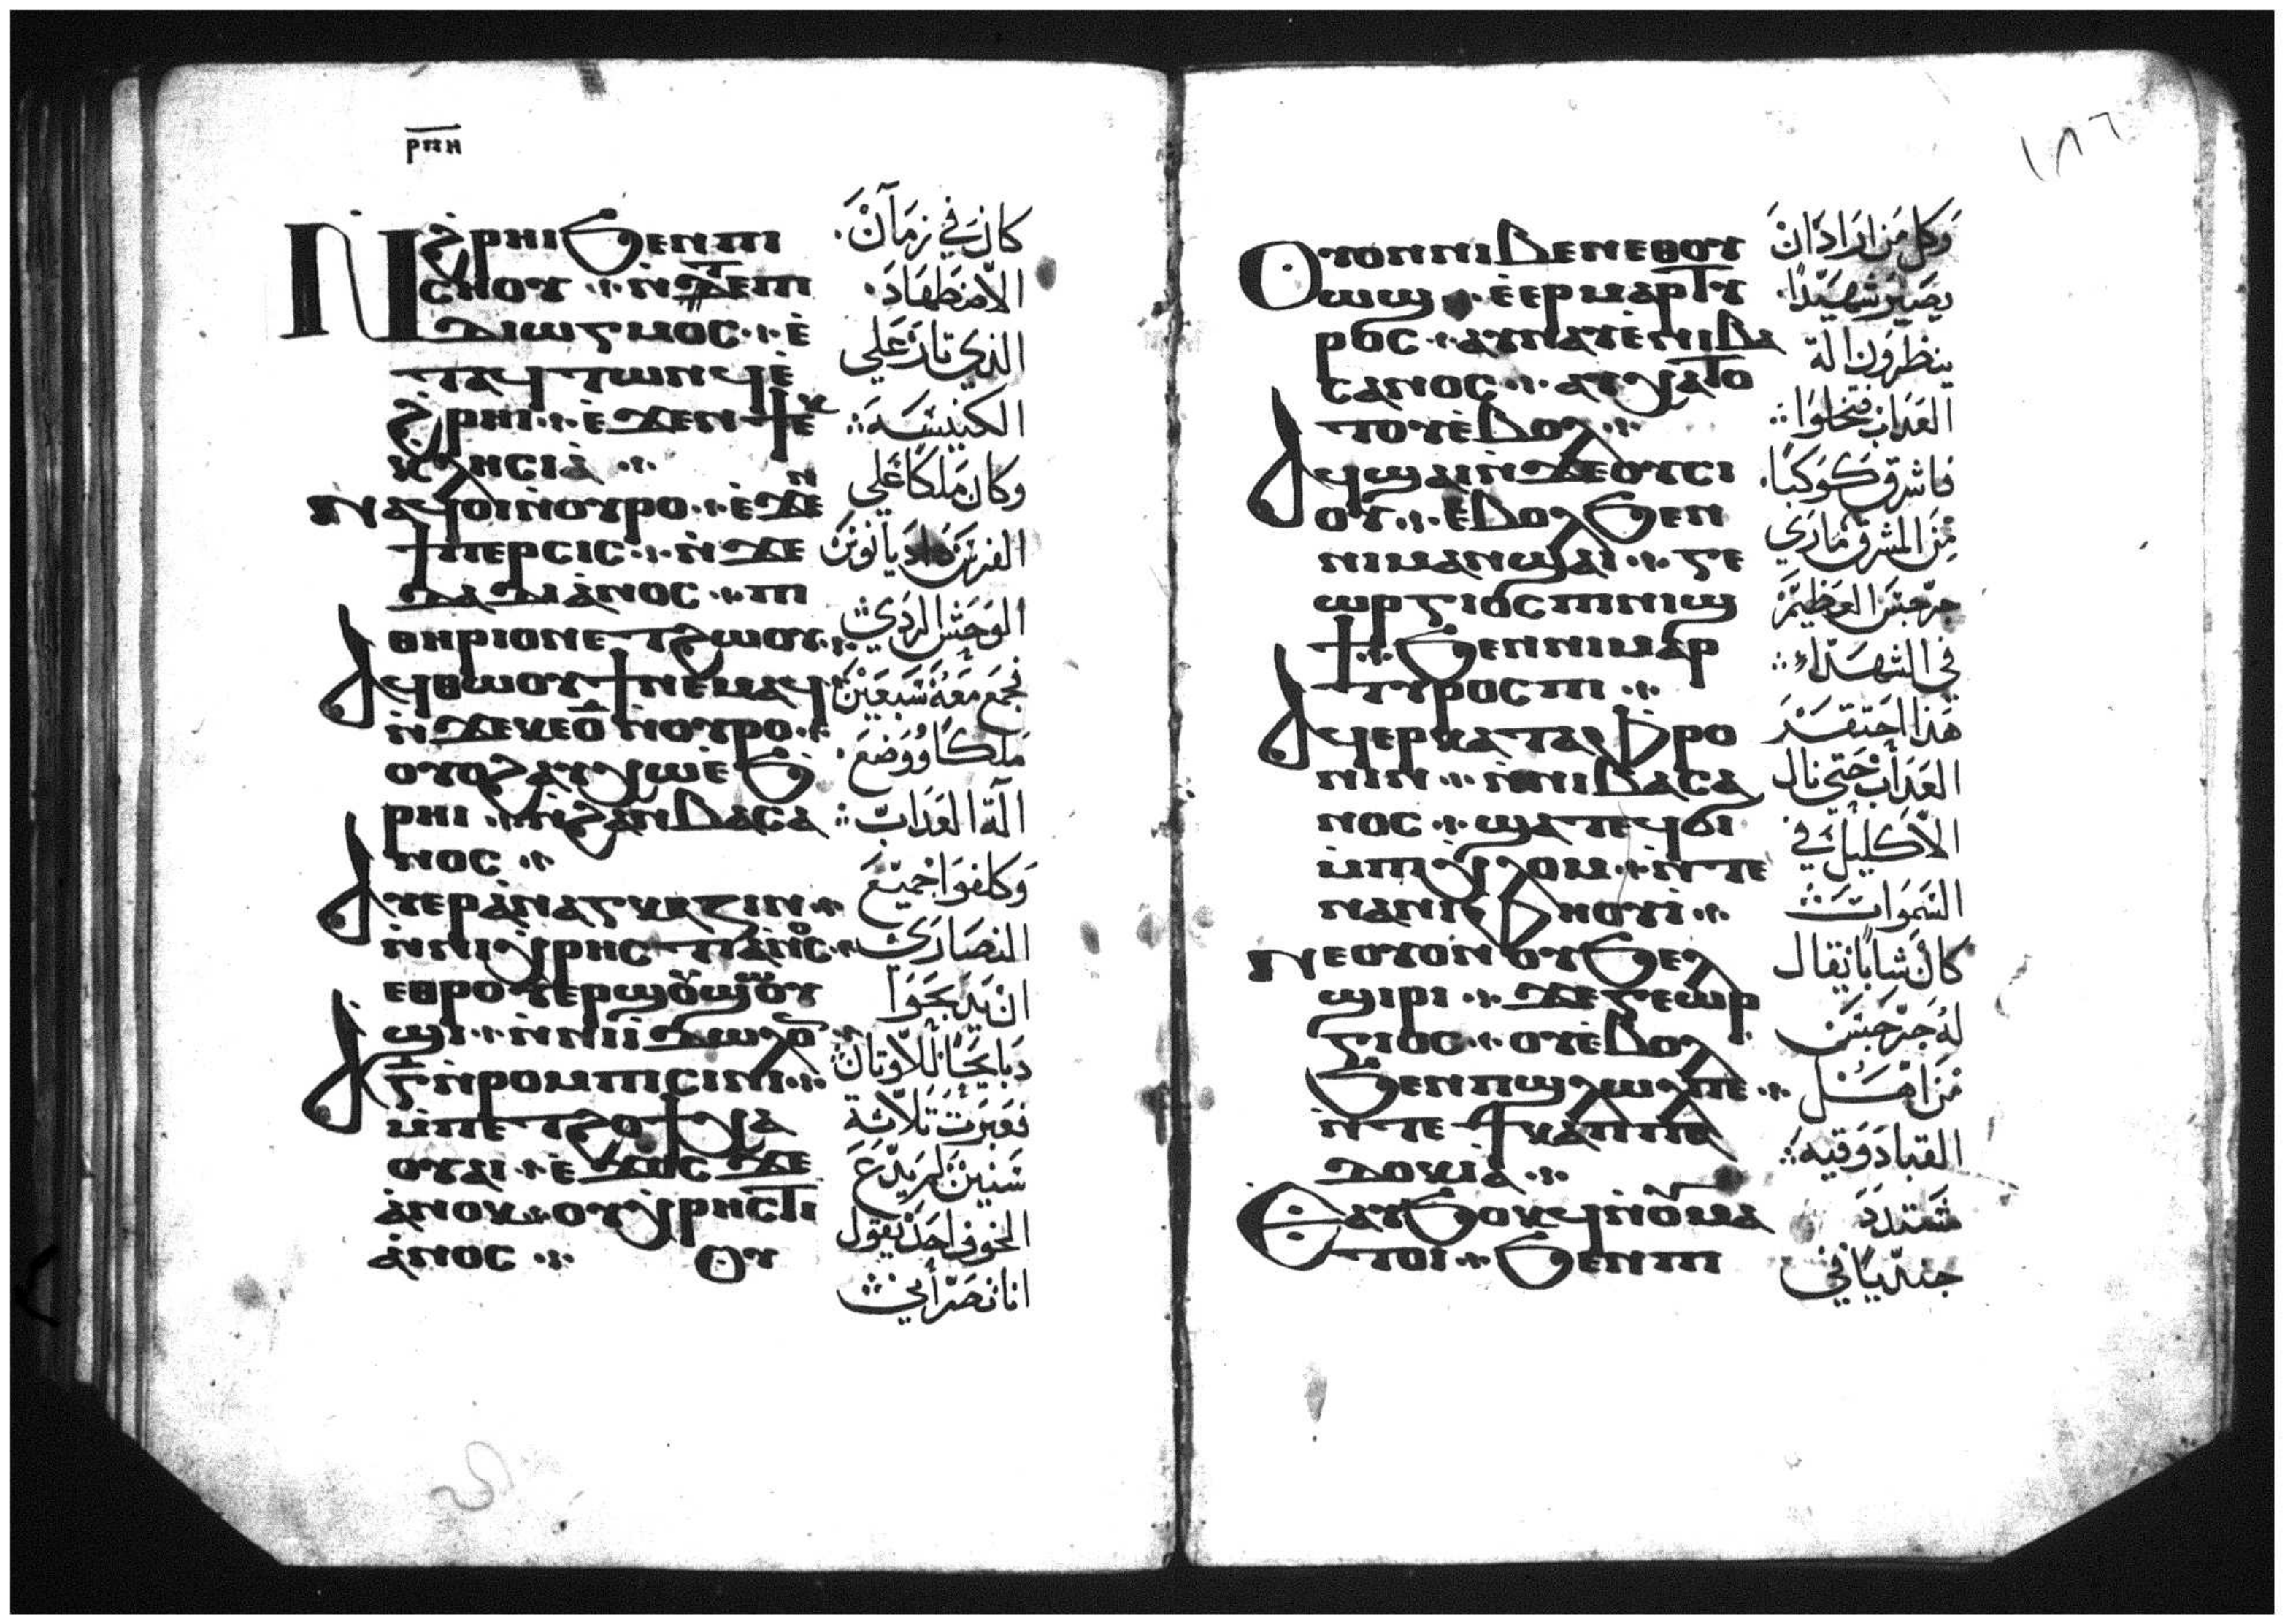 ⲣⲡⲏ
Ⲛϩⲣⲏⲓϧⲉⲛⲡⲓ
ⲥⲏⲟⲩ ⁘ ⲛ̀ϫⲉⲡⲓ
ⲇⲓⲱⲅⲙⲟⲥ ⁘ ⲉ̀
ⲧⲁϥⲧⲱⲛϥⲉ̀
ϩⲣⲏⲓ ⁘ ⲉ̀ϫⲉⲛϯⲉⲕ
ⲕⲗⲏⲥⲓⲁ̀ ⁘
ⲛⲁϥⲟⲓⲛⲟⲩⲣⲟ ⁘ ⲉ̀ϫⲉⲛ
ϯⲡⲉⲣⲥⲓⲥ ⁘ ⲛ̀ϫⲉ
ⲇⲁⲇⲓⲁⲛⲟⲥ ⁘ ⲡⲓ
ⲑⲏⲣⲓⲟⲛⲉⲧϩⲱⲟⲩ ⁘
Ⲁϥⲑⲱⲟⲩϯⲛⲉⲙⲁϥ
ⲛ̀ϫⲉⲕⲉⲟ̅ⲛⲟⲩⲣⲟ ⁘
ⲟⲩⲟϩⲁⲩⲭⲱⲉ̀ϧ
ⲣⲏⲓ ⁘ ⲛ̀ϩⲁⲛⲃⲁⲥⲁ
ⲛⲟⲥ ⁘
Ⲁⲩⲉⲣⲁⲛⲁⲅⲕⲉⲍⲓⲛ ⁘
ⲛ̀ⲛⲓⲭⲣⲏⲥⲧⲓⲁⲛⲟⲥ ⁘
ⲉⲑⲣⲟⲩⲉⲣϣⲟⲩϣⲱⲟⲩ
ϣⲓ ⁘ ⲛ̀ⲛⲓⲓ̀ⲇⲱⲗⲟⲛ ⁘
Ⲁⲅ̅ⲛ̀ⲣⲟⲙⲡⲓⲥⲓⲛⲓ ⁘
ⲙ̀ⲡⲉⲧϩⲟϯⲭⲁ
ⲟⲩⲁⲓ ⁘ ⲉ̀ϫⲟⲥϫⲉ
ⲁ̀ⲛⲟⲕ ⁘ ⲟⲩⲭⲣⲏⲥⲧⲓ
ⲁ̀ⲛⲟⲥ ⁘ Ⲟⲩ
كان في زمان
الاضطهاد
الذي ثار علي
الكنيسة
وكان ملكا علي
الفرس داديانوس
الوحش الردي
فجمع معه سبعين
ملكا ووضع
الة العذاب
وكلفوا جميع
النصاري
ان يدبحوا
دبايحا للاوتان
فعبرت تلاتة
سنين لم يدع
الخوف احد يقول
انا نصراني
١٨٦
Ⲟⲩⲟⲛⲛⲓⲃⲉⲛⲉⲑⲟⲩ
ⲱϣ ⁘ ⲉ̀ⲉⲣⲙⲁⲣⲧⲩ
ⲣⲟⲥ ⁘ ⲁⲩⲛⲁⲩⲉ̀ⲛⲓⲃⲁ
ⲥⲁⲛⲟⲥ ⁘ ⲁⲩⲭⲁⲧⲟ
ⲧⲟⲩⲉ̀ⲃⲟⲗ ⁘
Ⲁϥϣⲁⲓⲛ̀ϫⲉⲟⲩⲥⲓ
ⲟⲩ ⁘ ⲉ̀ⲃⲟⲗϧⲉⲛ
ⲛⲓⲙⲁⲛϣⲁⲓ ⁘ ⲅⲉ
ⲱⲣⲅⲓⲟⲥⲡⲓⲛⲓϣ
ϯ ⁘ ϧⲉⲛⲛⲓⲙⲁⲣ
ⲧⲩⲣⲟⲥⲡⲓ ⁘
Ⲁϥⲉⲣⲕⲁⲧⲁⲫⲣⲟ
ⲛⲓⲛ ⁘ ⲛ̀ⲛⲓⲃⲁⲥⲁ
ⲛⲟⲥ ⁘ ϣⲁⲧⲉϥϭⲓ
ⲙ̀ⲡⲓⲭⲗⲟⲙ ⁘ ⲛ̀ⲧⲉ
ⲛⲁⲛⲓⲫⲏⲟⲩⲓ̀ ⁘
ⲛⲉⲟⲩⲟⲛⲟⲩϧⲉⲗ
ϣⲓⲣⲓ ⁘ ϫⲉⲅⲉⲱⲣ
ⲅⲓⲟⲥ ⁘ ⲟⲩⲉ̀ⲃⲟⲗ
ϧⲉⲛⲡϣⲗⲱⲗⲡⲉ ⁘
ⲛ̀ⲧⲉϯⲕⲁⲡⲡⲉ
ⲇⲟⲕⲓⲁ ⁘
Ⲉⲁⲩϧⲟⲕϥⲛ̀ⲟⲙⲁ
ⲧⲟⲓ ⁘ ϧⲉⲛⲡⲓ
وكل من اراد ان
يصير شهيدا
ينظرون الة
العذاب فتخلوا
فاشرق كوكبا
من المشرق ماري
جرجس العظيم
في الشهداء
هذا احتقر
العذاب حتي نال
الاكليل في
السموات
كان شابا يقال
له جرجس
من اهل
القبادوقيه
جنديا في